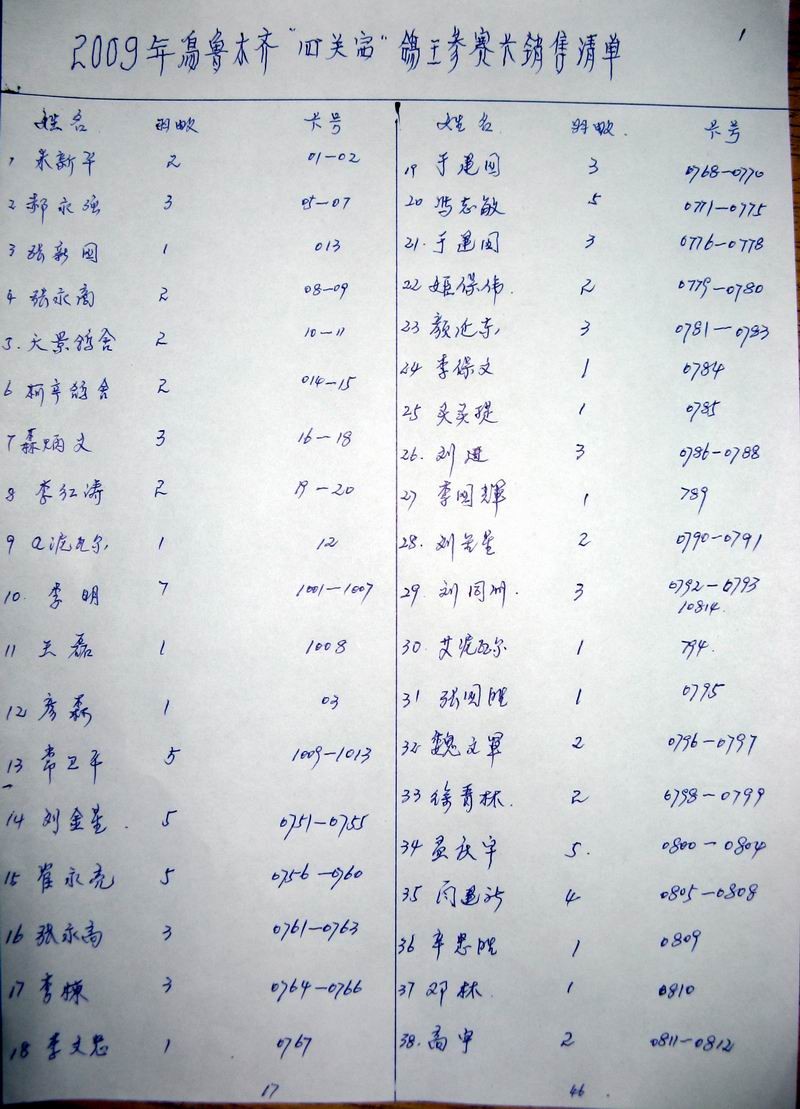 1
2009年乌鲁木齐“四关宫”鸽王参赛卡销售清单
姓名 羽数 卡号
1 朱新平 2 01-02
2 郝永强 3 05-07
3 张新国 1 013
4 张永高 2 08-09
5. 天景鸽舍 2 10-11
6 新辛鸽舍 2 014-15
7 森炳文 3 16-18
8 李红涛 2 19-20
9 a泥瓦尔 1 12
10. 李明 7 1001-1007
11 王磊 1 1008
12 彦森 1 03
13 常卫平 5 1009-1013
14 刘金星. 5 0751-0755
15 崔永亮 5 0756-0760
16 张永高 3 0761-0763
17 李栋 3 0764-0766
18 李文忠 1 0767
17
姓名 羽数. 卡号
19 于建国 3 0768-0770
20 冯志敏 5 0771-0775
21. 于建国 3 0776-0778
22 姬保伟. 2 0779-0780
23 颜近东 3 0781-0783
24 李保文 1 0784
25 1 0785
26. 刘进 3 0786-0788
27 李国辉 1 789
28. 刘金星 2 0790-0791
29. 刘同州. 3 0792-0793
10814.
30. 艾泥瓦尔 1 794.
31 张国胜 1 0795
32 魏文军 2 0796-0797
33 徐青林. 2 0798-0799
34 孟庆宇 5. 0800-0804
35 闫建新 4 0805-0808
36 辛忠胜 1 0809
37 邓林. 1 0810
38. 高宇 2 0811-0812
46